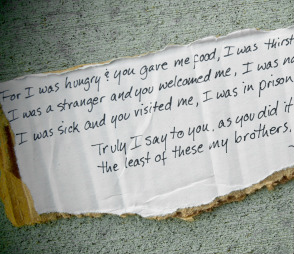 For I was hungry & you gave me food, I was thirst
I was a stranger and you welcomed me, I was na
I was sick and you visited me, I was in prison
Truly I say to you, as you did it
the least of these my brothers,